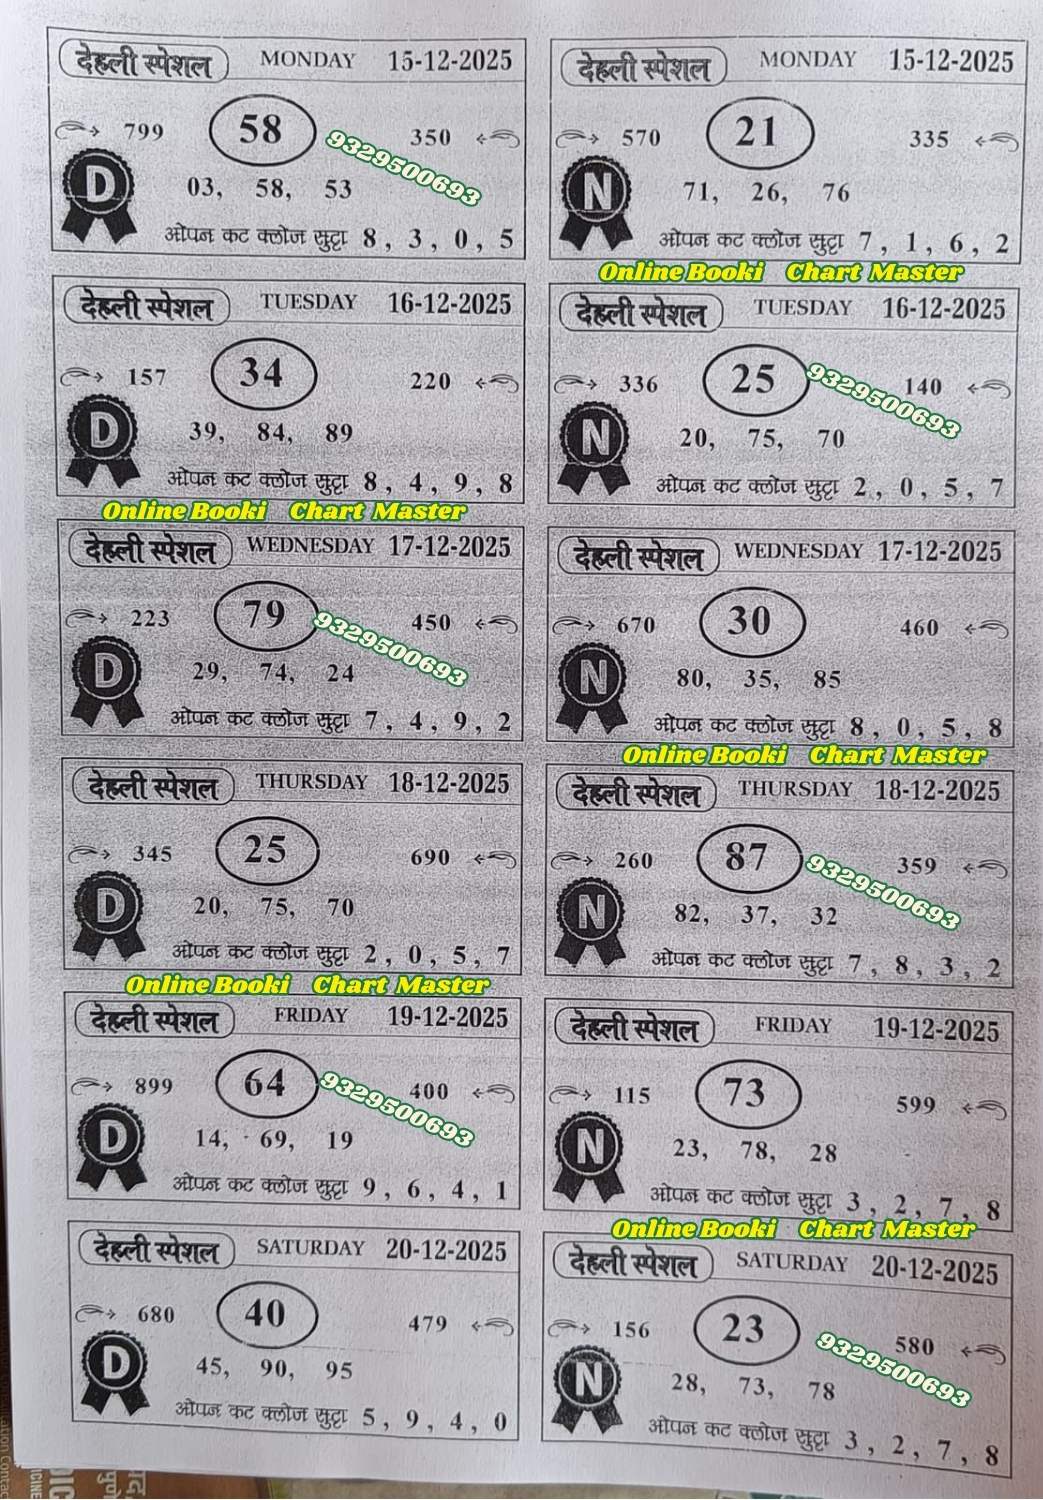 देहली स्पेशल MONDAY 15-12-2025
799 58 350
9329500693
D
03, 58, 53
ओपन कट क्लोज सुट्टा 8, 3, 0, 5
देहली स्पेशल MONDAY 15-12-2025
570 21 335
N
71, 26, 76
ओपन कट क्लोज सुट्टा 7, 1, 6, 2
Online Booki Chart Master
देहली स्पेशल TUESDAY 16-12-2025
157 34 220
D
39, 84, 89
ओपन कट क्लोज सुट्टा 8, 4, 9, 8
Online Booki Chart Master
देहली स्पेशल TUESDAY 16-12-2025
336 25 140
9329500693
N
20, 75, 70
ओपन कट क्लोज सुट्टा 2, 0, 5, 7
देहली स्पेशल WEDNESDAY 17-12-2025
223 79 450
9329500693
D
29, 74, 24
ओपन कट क्लोज सुट्टा 7, 4, 9, 2
देहली स्पेशल WEDNESDAY 17-12-2025
670 30 460
N
80, 35, 85
ओपन कट क्लोज सुट्टा 8, 0, 5, 8
Online Booki Chart Master
देहली स्पेशल THURSDAY 18-12-2025
345 25 690
D
20, 75, 70
ओपन कट क्लोज सुट्टा 2, 0, 5, 7
Online Booki Chart Master
देहली स्पेशल THURSDAY 18-12-2025
260 87 359
9329500693
N
82, 37, 32
ओपन कट क्लोज सुट्टा 7, 8, 3, 2
देहली स्पेशल FRIDAY 19-12-2025
899 64 400
9329500693
D
14, 69, 19
ओपन कट क्लोज सुट्टा 9, 6, 4, 1
देहली स्पेशल FRIDAY 19-12-2025
115 73 599
N
23, 78, 28
ओपन कट क्लोज सुट्टा 3, 2, 7, 8
Online Booki Chart Master
देहली स्पेशल SATURDAY 20-12-2025
680 40 479
D
45, 90, 95
ओपन कट क्लोज सुट्टा 5, 9, 4, 0
देहली स्पेशल SATURDAY 20-12-2025
156 23 580
9329500693
N
28, 73, 78
ओपन कट क्लोज सुट्टा 3, 2, 7, 8